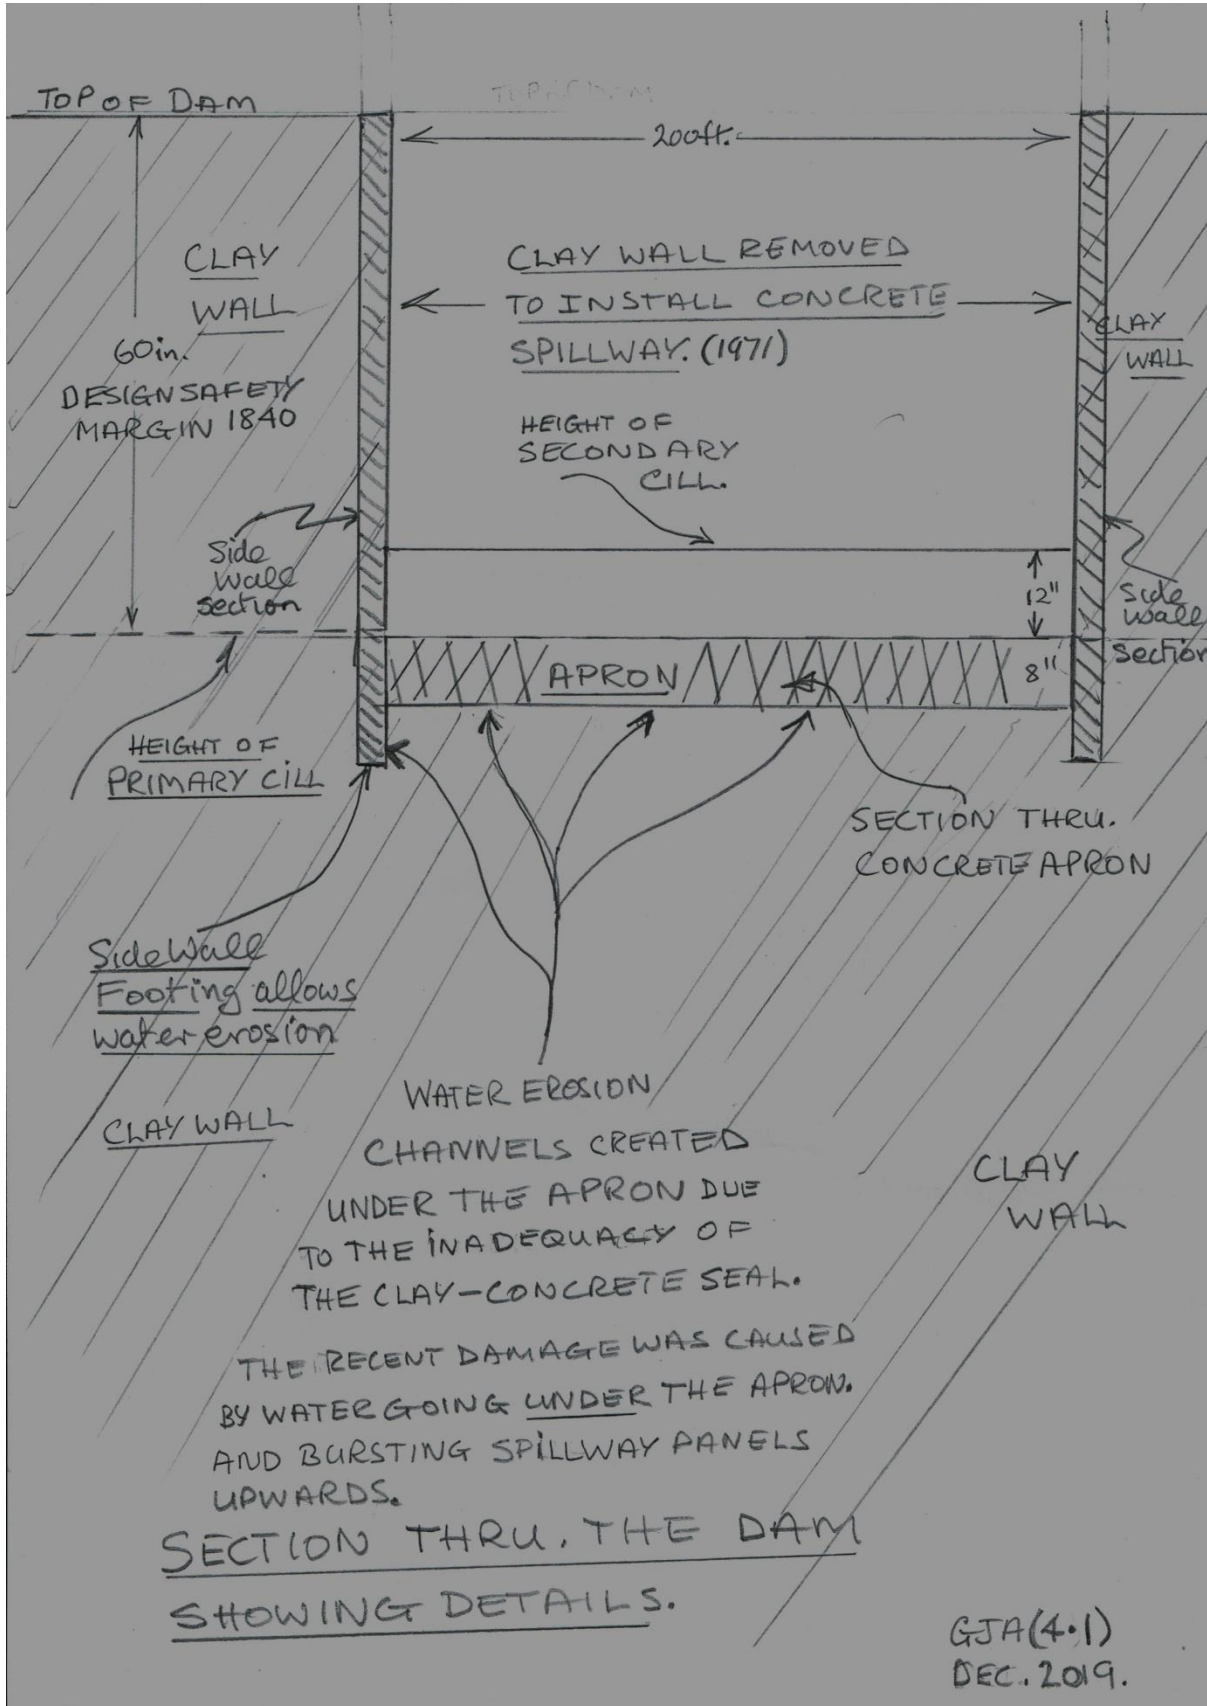 TOP OF DAM
TOP OF DAM
200ft.
CLAY
WALL
CLAY WALL REMOVED
TO INSTALL CONCRETE
SPILLWAY. (1971)
CLAY
WALL
60in.
DESIGN SAFETY
MARGIN 1840
HEIGHT OF
SECONDARY
CILL.
Side
Wall
section
12"
Side
Wall
Section
APRON
8"
HEIGHT OF
PRIMARY CILL
SECTION THRU.
CONCRETE APRON
Side Wall
Footing allows
water erosion
WATER EROSION
CHANNELS CREATED
UNDER THE APRON DUE
TO THE INADEQUACY OF
THE CLAY-CONCRETE SEAL.
CLAY WALL
CLAY
WALL
THE RECENT DAMAGE WAS CAUSED
BY WATER GOING UNDER THE APRON.
AND BURSTING SPILLWAY PANELS
UPWARDS.
SECTION THRU. THE DAM
SHOWING DETAILS.
GJA(4.1)
DEC. 2019.